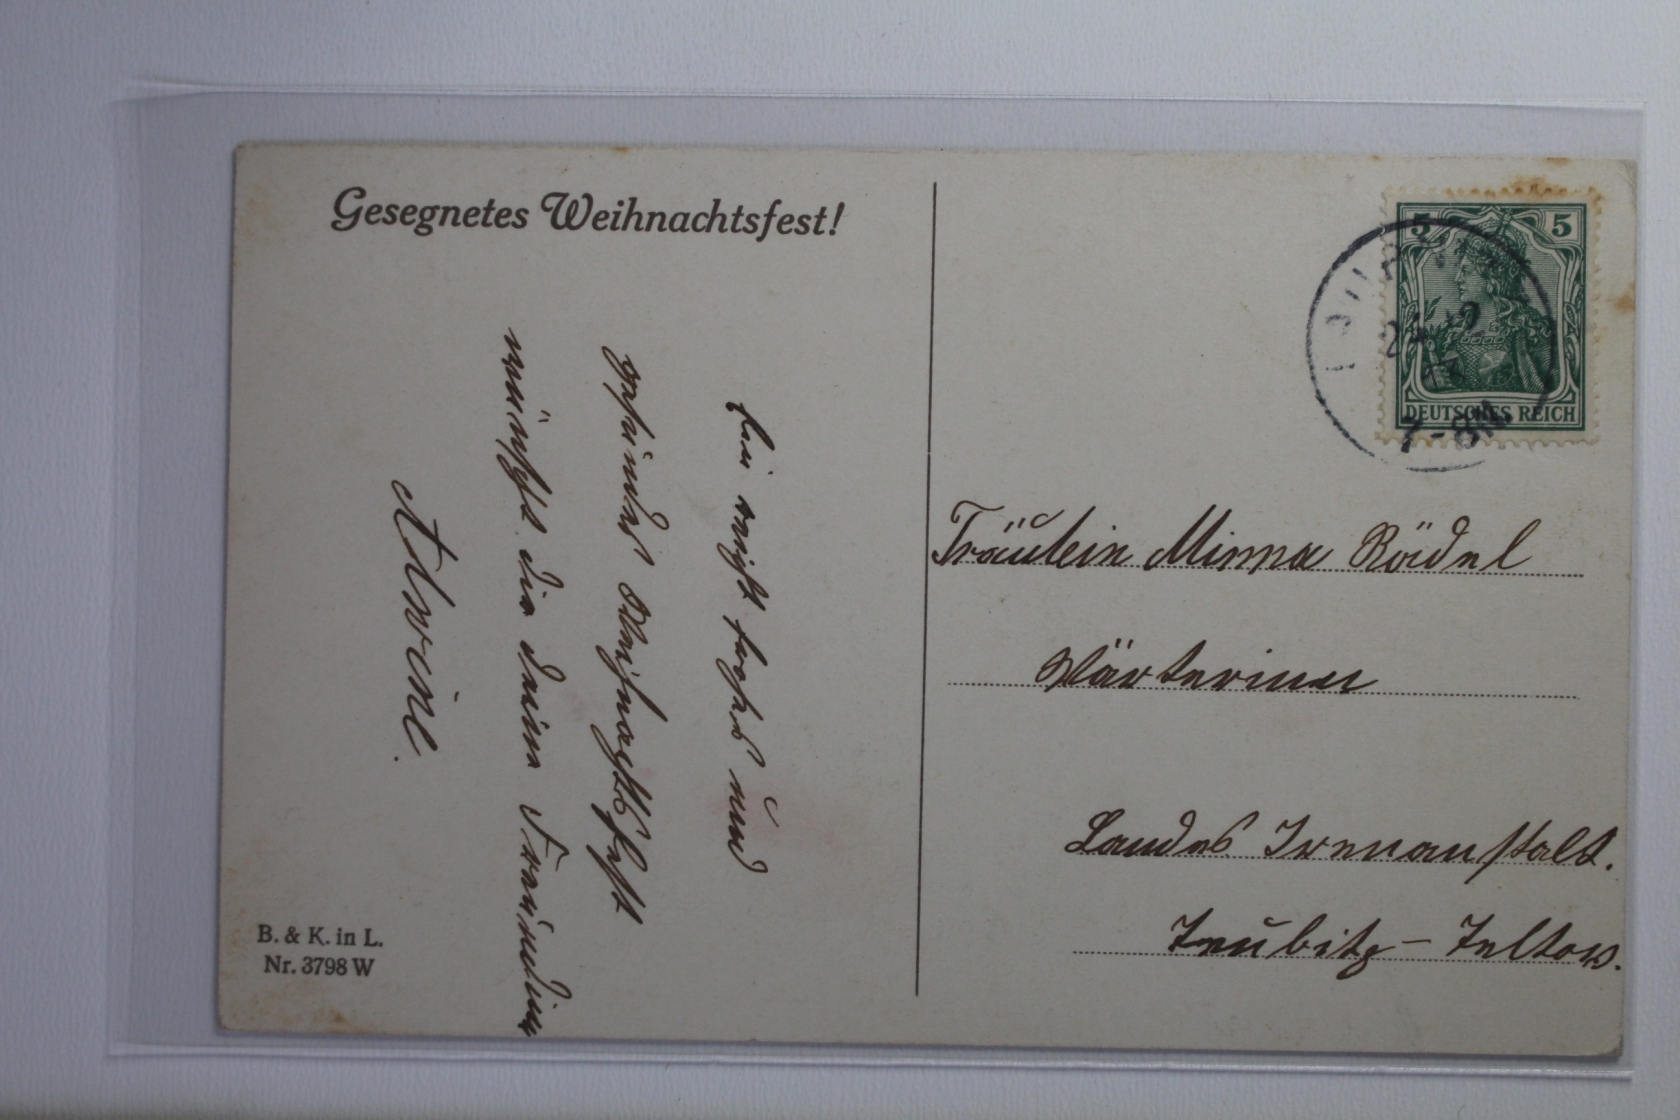 Gesegnetes Weihnachtsfest!
Ein recht frohes und
gesundes Weihnachtsfest
wünscht dir deine Freundin
Alwine.
B. & K. in L.
Nr. 3798 W
5 5
DEUTSCHES REICH
7-8N.
Fräulein Minna Rödel
Wärterinn
Landes Irrenanstalt.
Teubitz - Teltow.